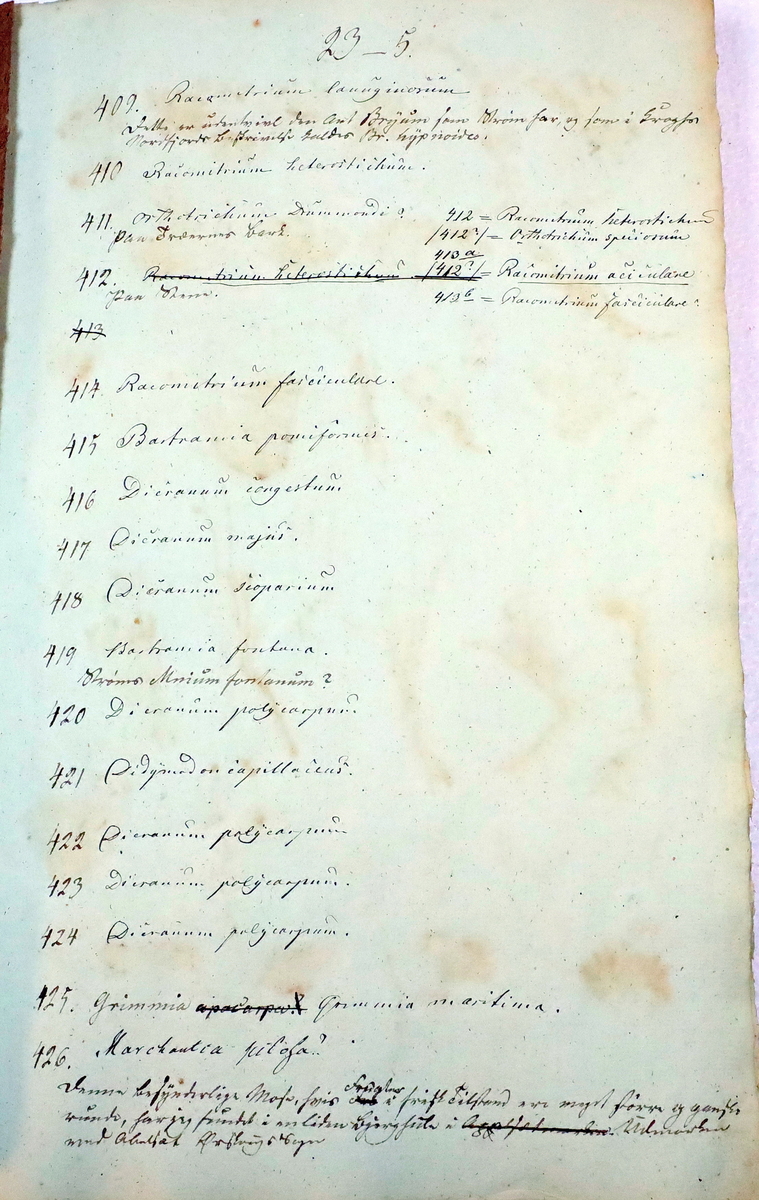 23 – 5.
409. Racometrium lanuginosum
Dette er udentvivl den Art Bryum som Strøm har, og som i Kroghs
Nordfjords Beskrivelse kaldes Br. hypnoides.
410 Racomitrium heterostichum.
411. Orthotrichum Drummondi?
paa Træernes Bark.
412 = Racometrium heterostichum
/412?/ = Orthotrichum speciosum
413 a
412. Racometrium heterostichum /412?/ = Racomitrium aciculare
paa Stene.
413 b = Racometrium fasciculare?
413
414 Racometrium fasciculare.
415 Bartramia pomiformis.
416 Dicranum congestum
417 Dicranum majus.
418 Dicranum scoparium
419 Bartramia fontana.
Strøms Mnium fontanum?
420 Dicranum polycarpum
421 Didymodon capillaceus.
422 Dicranum polycarpum
423 Dicranum polycarpum.
424 Dicranum polycarpum.
425. Grimmia apocarpa? Grimmia maritima.
426. Marchantia pilosa?
Denne besynderlige Mose, hvis Frugter i frisk Tilstand ere meget større og ganske
runde, har jeg fundet i en liden Bjerghule i Udmarken
ved Aboltsæt Ørskougs Sogn